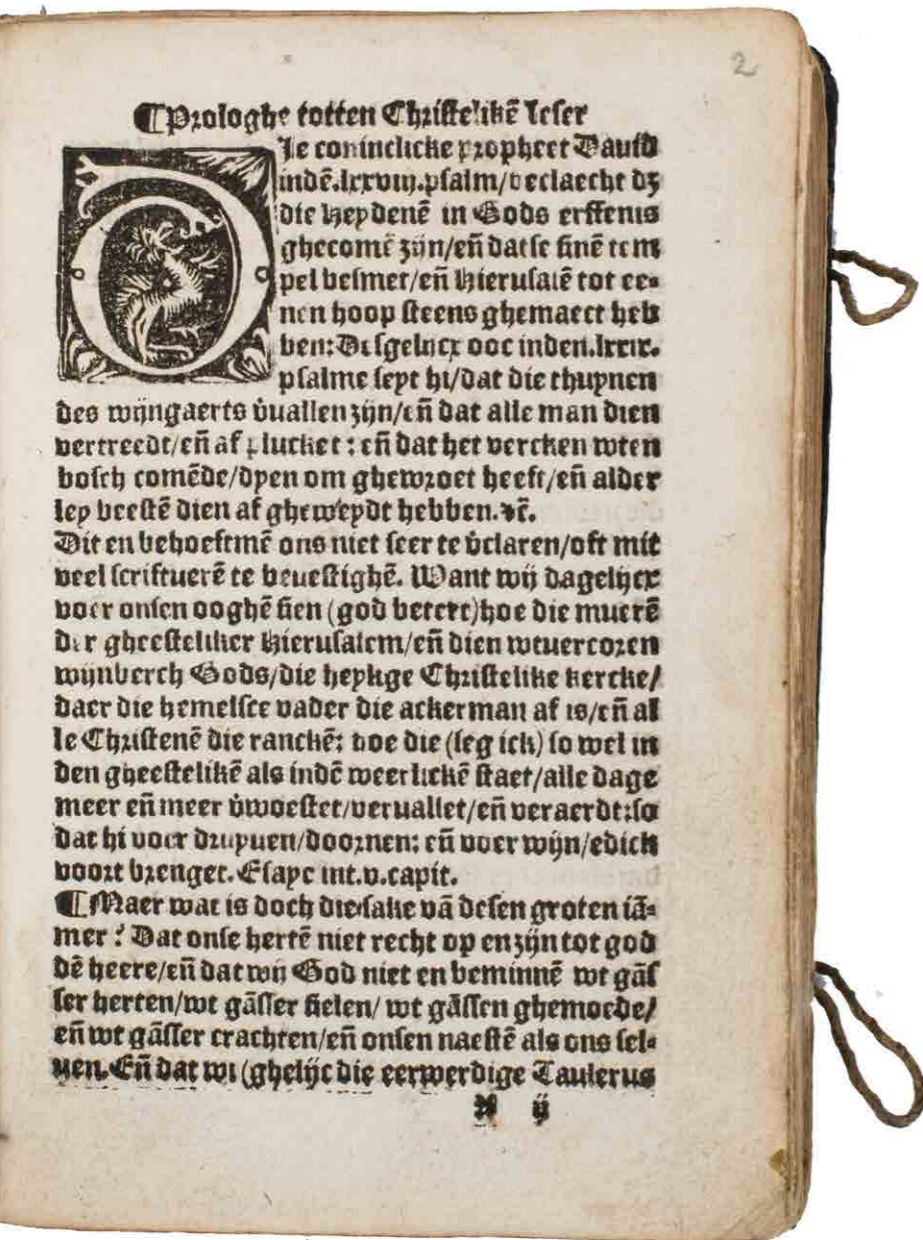 2
¶Prologhe totten Christelikē leser
DJe conincklicke propheet Dauid
indē.lxxviij.psalm/beclaecht dz
die Heydenē in Gods erffenis
ghecomē zijn/eñ datse sinē tem
pel besmet/eñ Hierusalē tot ee-
nen hoop steens ghemaect heb
ben: Desgelijcx ooc inden.lxxix.
psalme seyt hi/dat die thuynen
des wijngaerts v̄uallen zijn/eñ dat alle man dien
vertreedt/eñ af plucket: eñ dat het vercken wten
bosch comēde/dyen om ghewroet heeft/eñ alder
ley beestē dien af gheweydt hebben.⁊c̄.
Dit en behoeftmē ons niet seer te v̄claren/oft mit
veel scriftuerē te beuestighē. Want wij dagelijcx
voer onsen ooghē sien (god betert) hoe die muerē
der gheesteliker Hierusalem/eñ dien wtuercoren
wijnberch Gods/die heylige Christelike kercke/
daer die hemelsce vader die ackerman af is/eñ al
le Christenē die ranckē: hoe die (seg ick) so wel in
den gheestelikē als indē weerlickē staet/alle dage
meer eñ meer v̄woestet/veruallet/eñ veraerdt: so
dat hi voer druyuen/doornen: eñ voer wijn/edick
voort brenget. Esaye int.v.capit.
¶Maer wat is doch die sake vā desen groten iā-
mer? Dat onse hertē niet recht op en zijn tot god
dē heere/eñ dat wij God niet en beminnē wt gās
ser herten/wt gāsser sielen/ wt gāssen ghemoede/
eñ wt gāsser crachten/eñ onsen naestē als ons sel-
uen. Eñ dat wi (ghelijc die eerwerdige Taulerus
ij